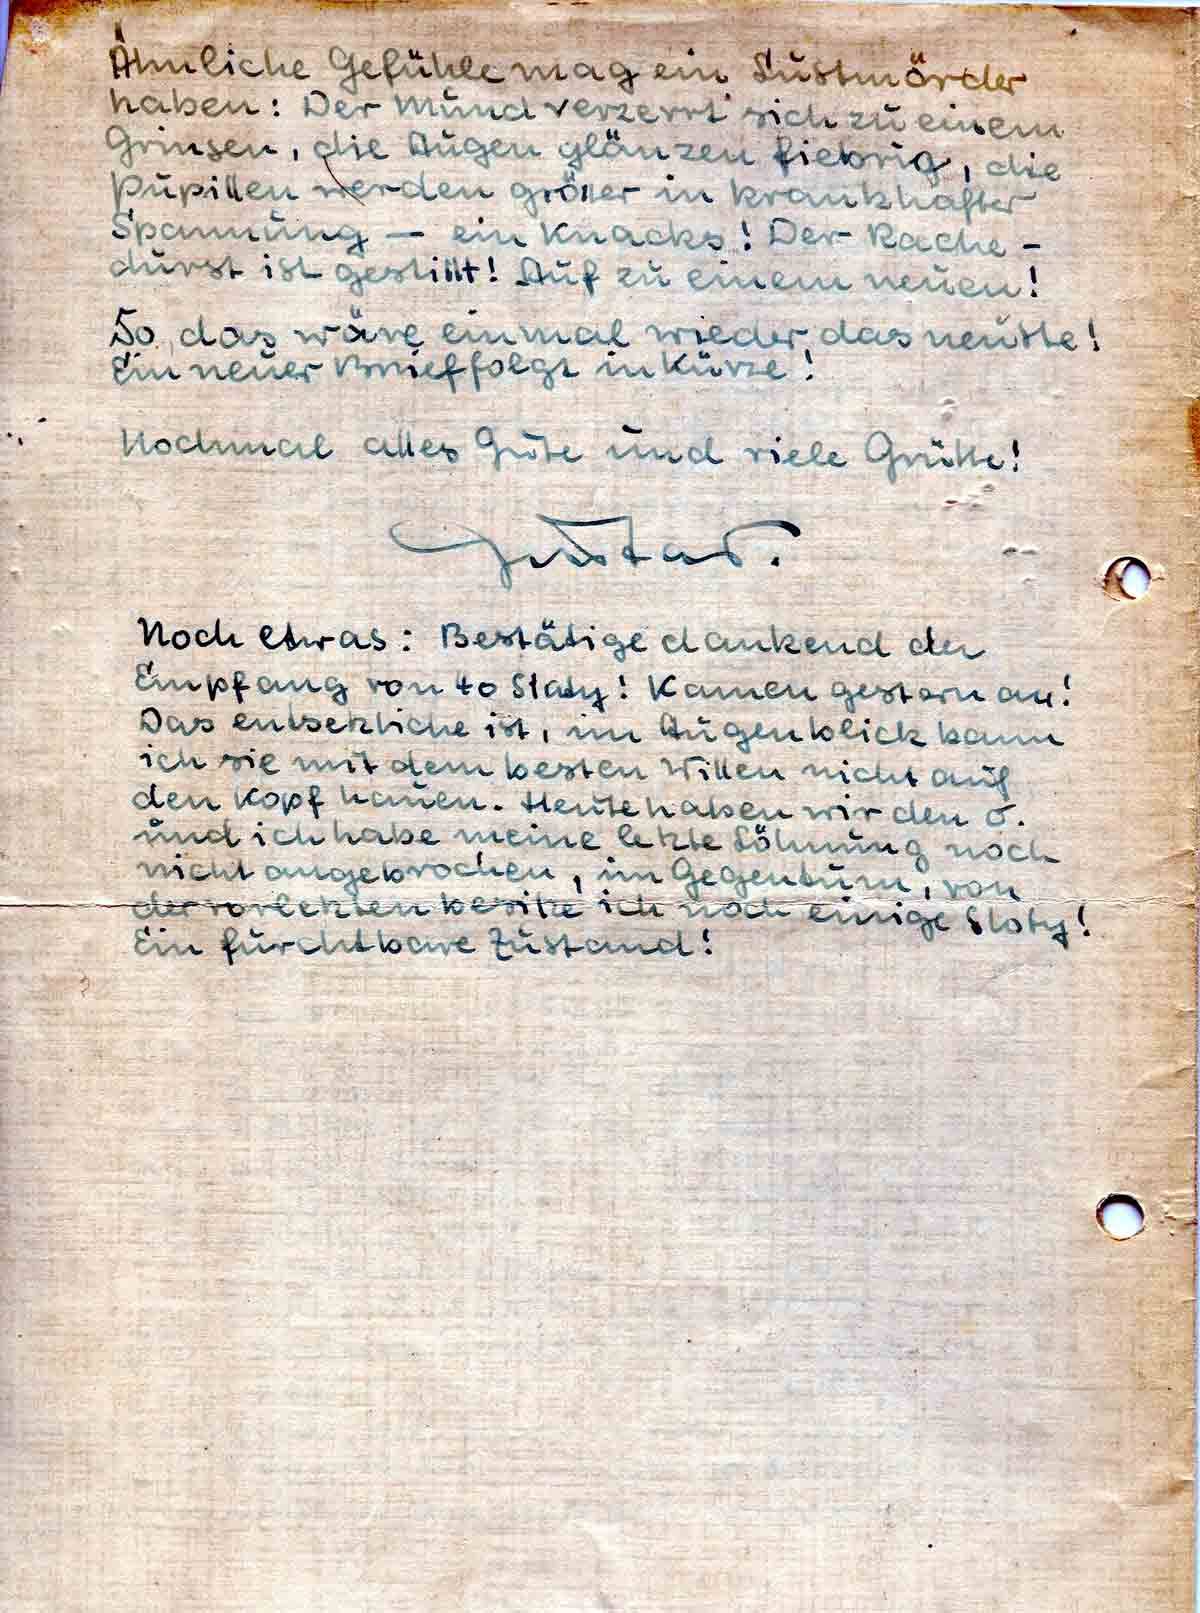 Ähnliche Gefühle mag ein Lustmörder
haben: Der Mund verzerrt sich zu einem
Grinsen, die Augen glänzen fiebrig, die
Pupillen werden größer in krankhafter
Spannung – ein Knacks! Der Rache-
durst ist gestillt! Auf zu einem neuen!
So, das wäre einmal wieder das neuste!
Ein neuer Brief folgt in Kürze!
Nochmal alles Gute und viele Grüße!
Gustav.
Noch etwas: Bestätige dankend den
Empfang von 40 Sloty! Kamen gestern an!
Das entsetzliche ist, im Augenblick kann
ich sie mit dem besten Willen nicht auf
den Kopf hauen. Heute haben wir den 5.
und ich habe meine letzte Löhnung noch
nicht angebrochen, im Gegentum, von
der vorletzten besitze ich noch einige Sloty!
Ein furchtbare Zustand!